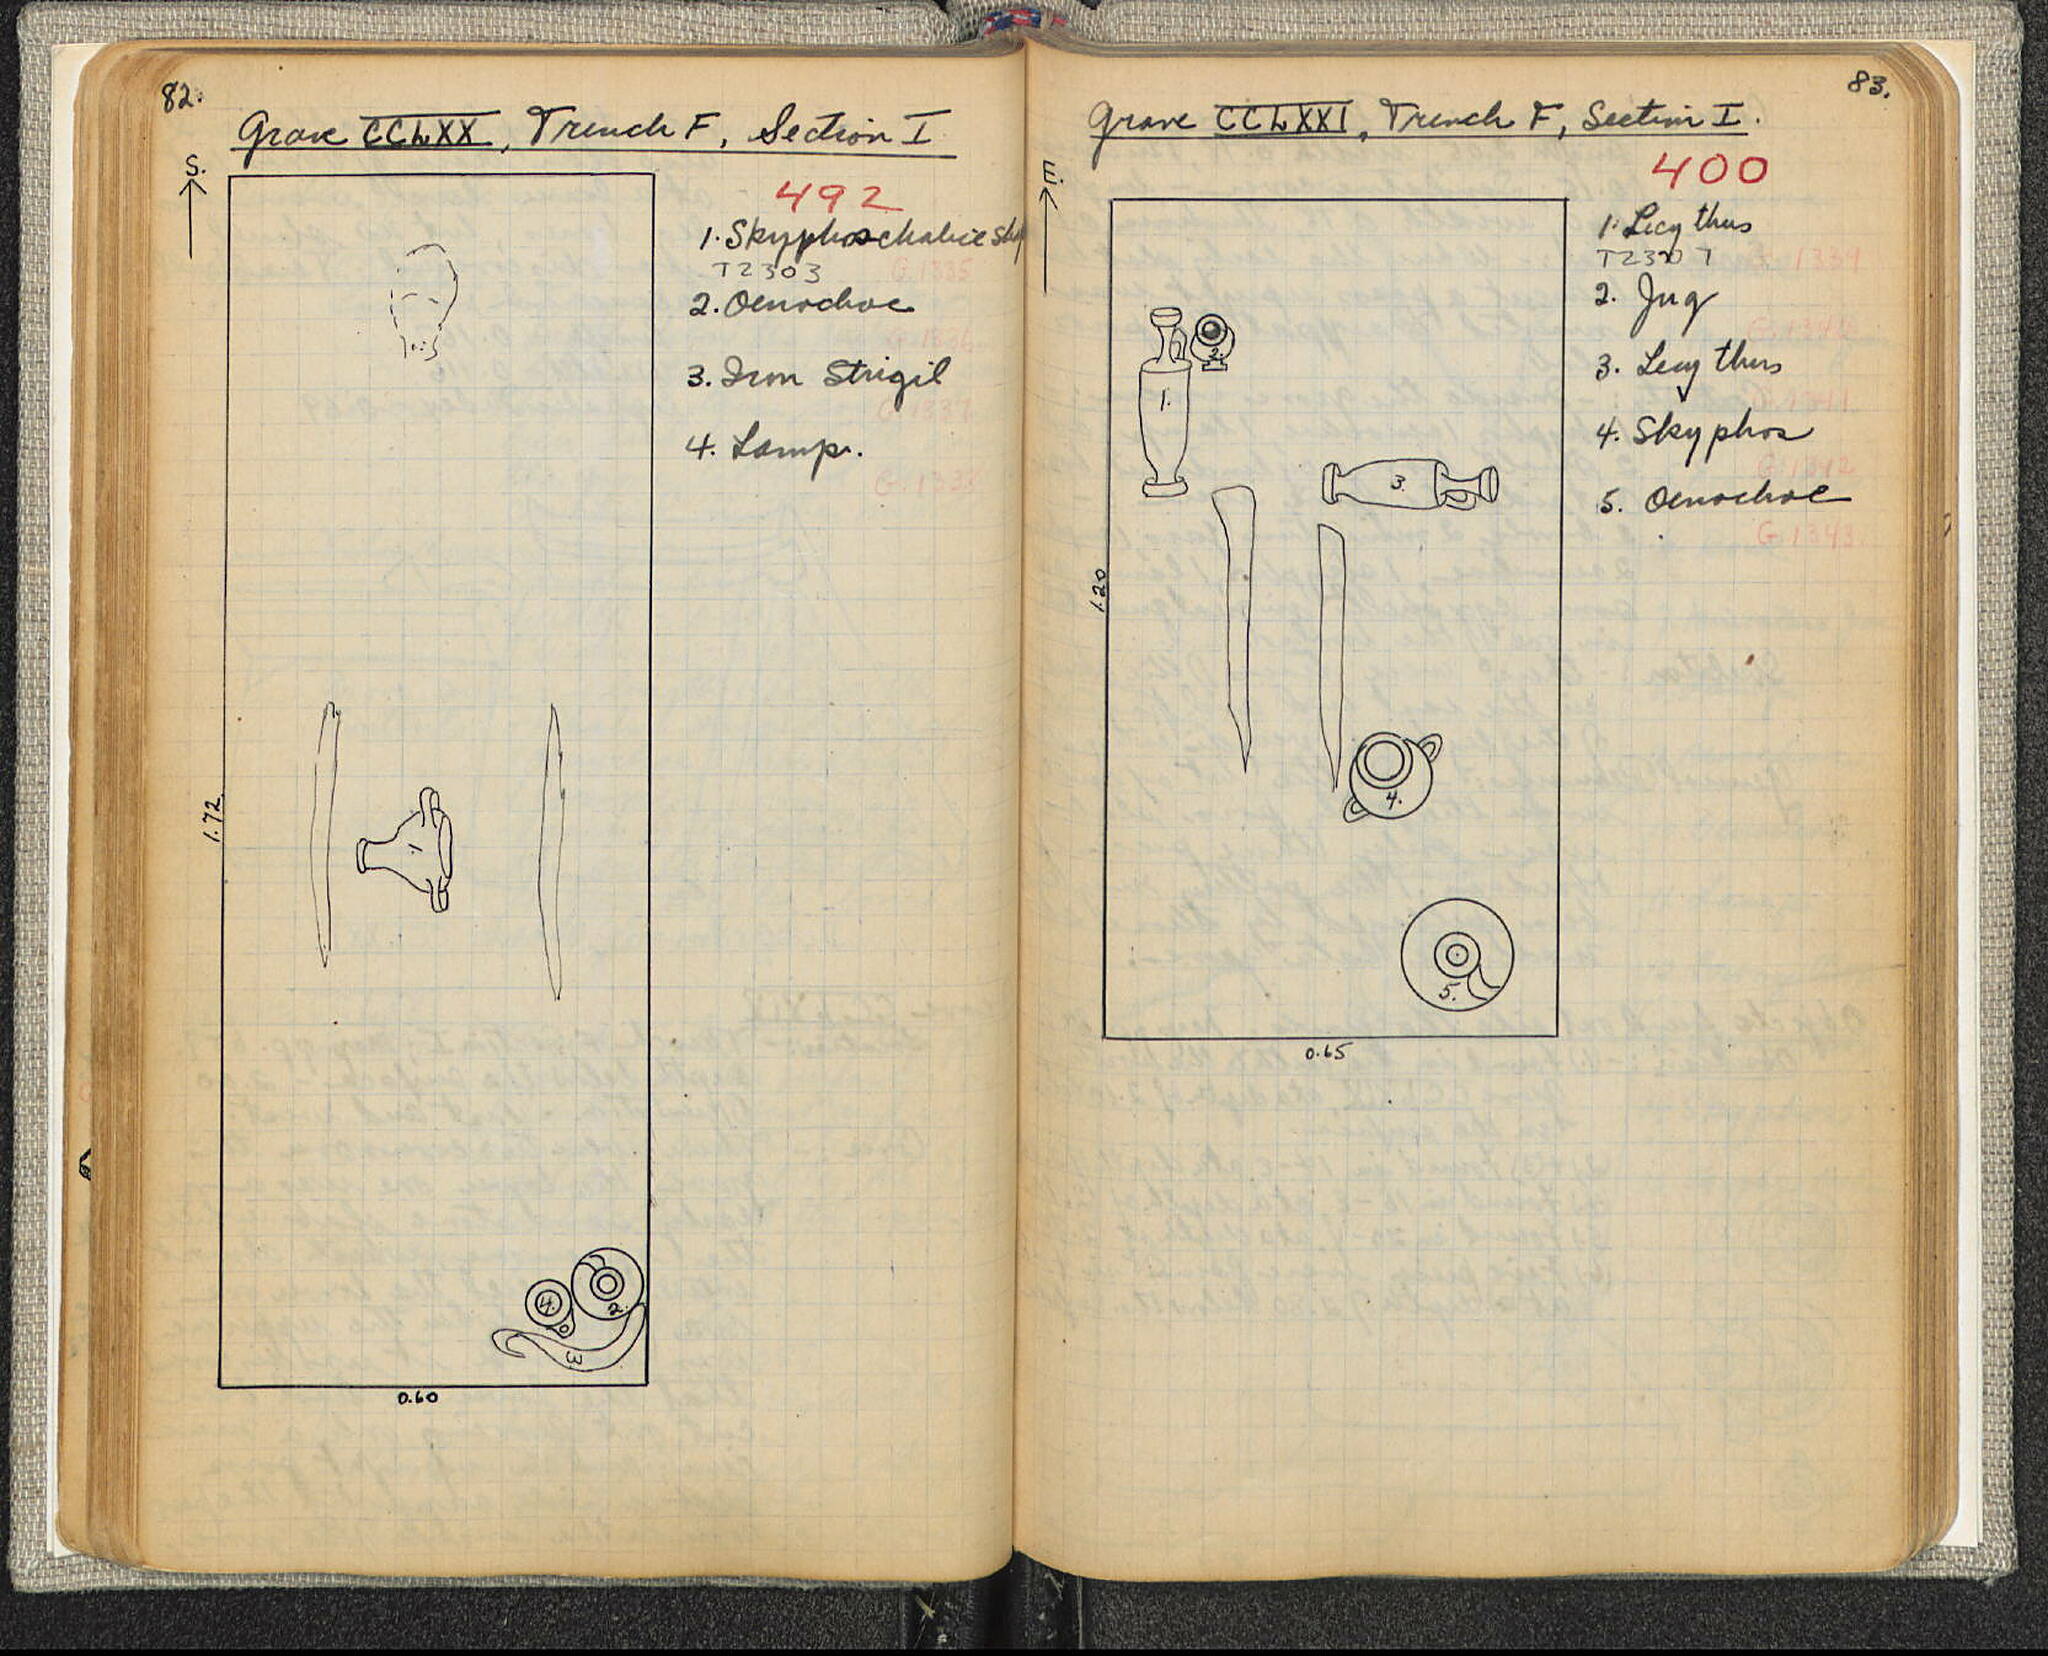 82.
Grave CCLXX, Trench F, Section I
S.
492
1. Skyphos chalice
T2303 G.1335
2. Oenochoe
G.1336
3. Iron Strigil
G.1337
4. Lamp.
G.1338
1.72
1
4.
2.
3
0.60
83.
Grave CCLXXI, Trench F, Section I.
E.
400
1. Lecythus
T2307 G.1339
2. Jug
3. Lecythus
G.1341
4. Skyphos
G.1342
5. Oenochoe
G.1343
2.
1.
3.
1.20
4.
5.
0.65